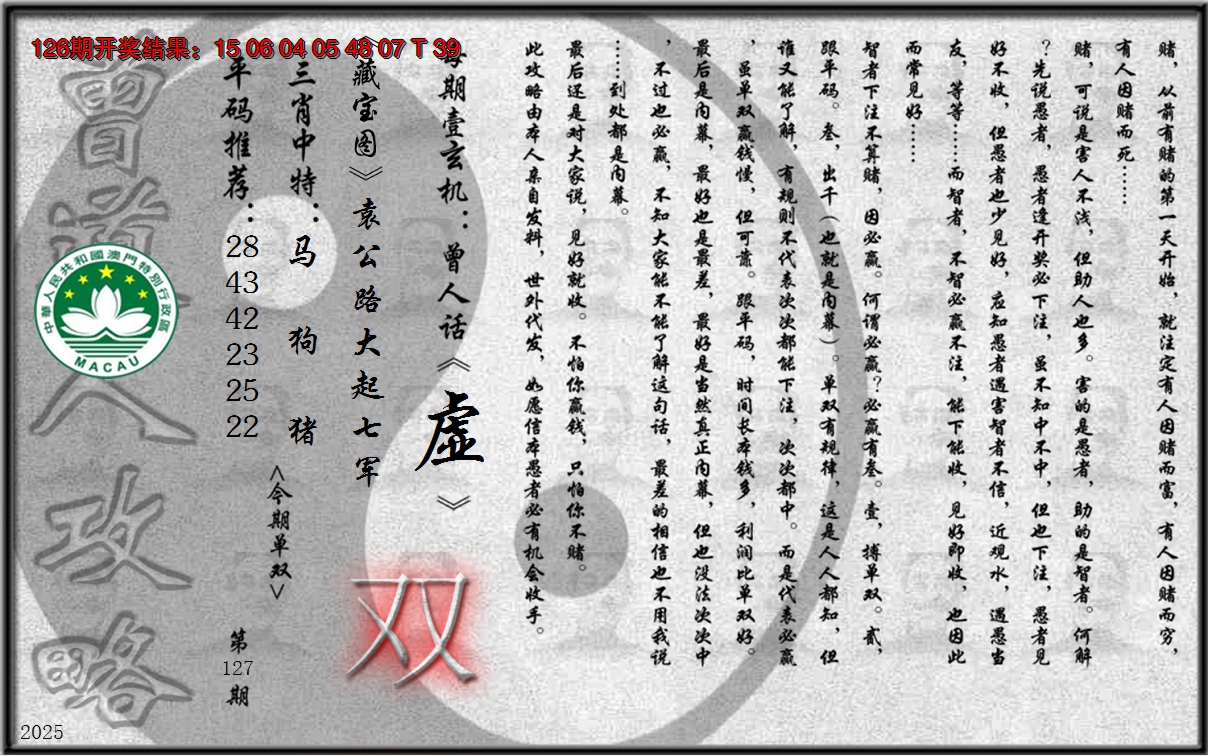 126期开奖结果：15 06 04 05 48 07 T 39
赌，从前有赌的第一天开始，就注定有人因赌而富，有人因赌而穷，
有人因赌而死……
赌，可说是害人不浅，但助人也多。害的是愚者，助的是智者。何解
？先说愚者，愚者逢开奖必下注，虽不知中不中，但也下注，愚者见
好不收，但愚者也少见好，应知愚者遇害智者不信，近观水，遇愚当
友，等等……而智者，不智必赢不注，能下能收，见好即收，也因此
而常见好……
智者下注不算赌，因必赢。何谓必赢？必赢有叁。壹，搏单双。贰，
跟平码。叁，出千（也就是内幕）。单双有规律，这是人人都知，但
谁又能了解，有规则不代表次次都能下注，次次都中。而是代表必赢
，虽单双赢钱慢，但可靠。跟平码，时间长本钱多，利润比单双好。
最后是内幕，最好也是最差，最好是当然真正内幕，但也没法次次中
，不过也必赢，不知大家能不能了解这句话，最差的相信也不用我说
……到处都是内幕。
最后还是对大家说，见好就收。不怕你赢钱，只怕你不赌。
此攻略由本人亲自发料，世外代发，如愿信本愚者必有机会收手。
每期壹玄机：曾人话《虚》
《藏宝图》袁公路大起七军
双
三肖中特：马 狗 猪
<今期单双>
平码推荐：
28
43
42
23
25
22
第
127
期
曾道人攻略
中華人民共和國澳門特別行政區
MACAU
2025